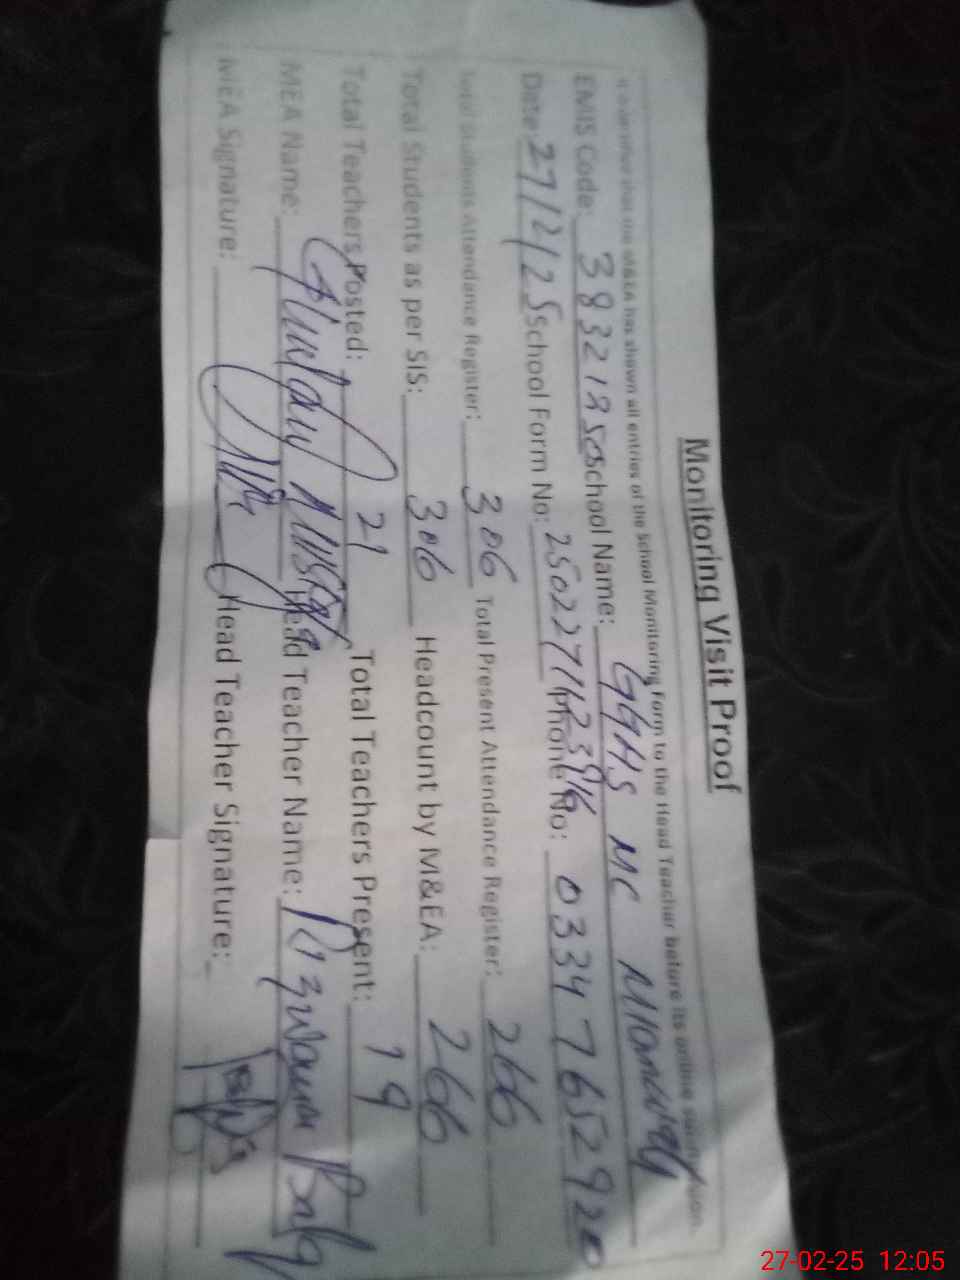 Monitoring Visit Proof
It is verified that the M&EA has shown all entries of the School Monitoring Form to the Head Teacher before its online
EMIS Code: School Name: GGHS MC Mianwali
Date: 27/2/25 School Form No: Phone No: 03347652920
Total Students Attendance Register: 306 Total Present Attendance Register: 266
Total Students as per SIS: 306 Headcount by M&EA: 266
Total Teachers Posted: 21 Total Teachers Present: 19
MEA Name: Head Teacher Name:
MEA Signature: Head Teacher Signature:
27-02-25 12:05